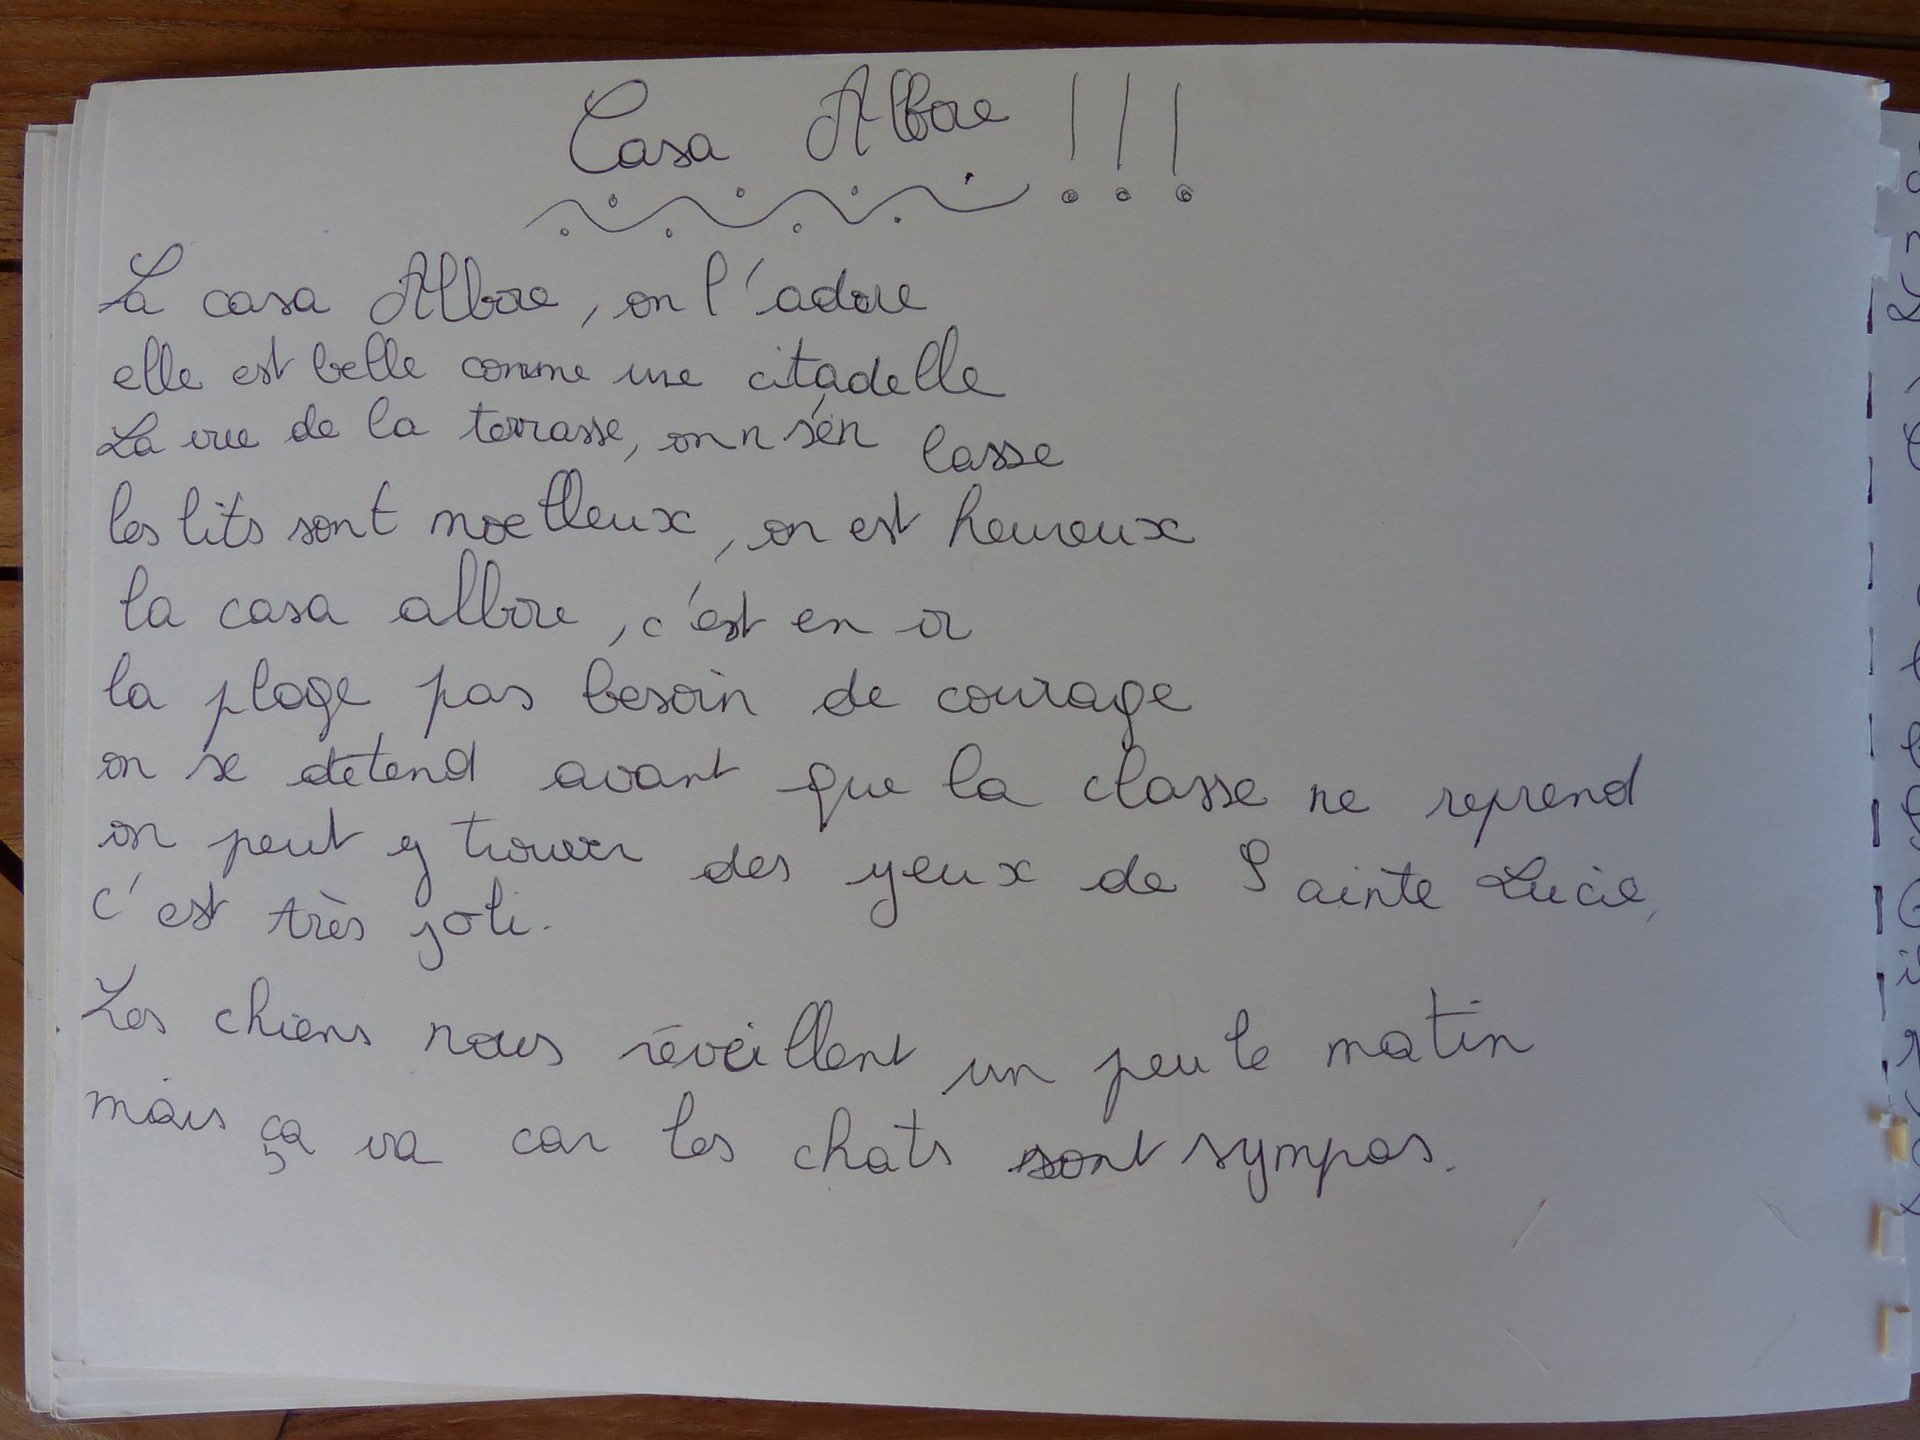 Casa Albore !!!
La casa Albore, on l'adore
elle est belle comme une citadelle
La vue de la terrasse, on n s'en lasse
les lits sont moelleux, on est heureux
la casa albore, c'est en or
la plage pas besoin de courage
on se détend avant que la classe ne reprend
on peut y trouver des yeux de Sainte Lucie,
c'est très joli.
Les chiens nous réveillent un peu le matin
mais ça va car les chats sont sympas.